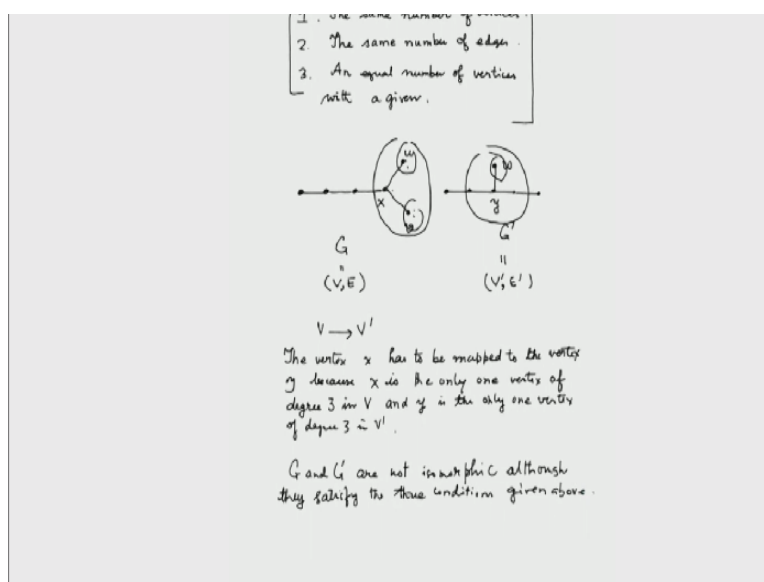 1. The same number of vertices.
2. The same number of edges.
3. An equal number of vertices
with a given.
w
x
v
w
y
G
"
(V, E)
G'
"
(V', E')
V → V'
The vertex x has to be mapped to the vertex
y because x is the only one vertex of
degree 3 in V and y is the only one vertex
of degree 3 in V'.
G and G' are not isomorphic although
they satisfy the three condition given above.